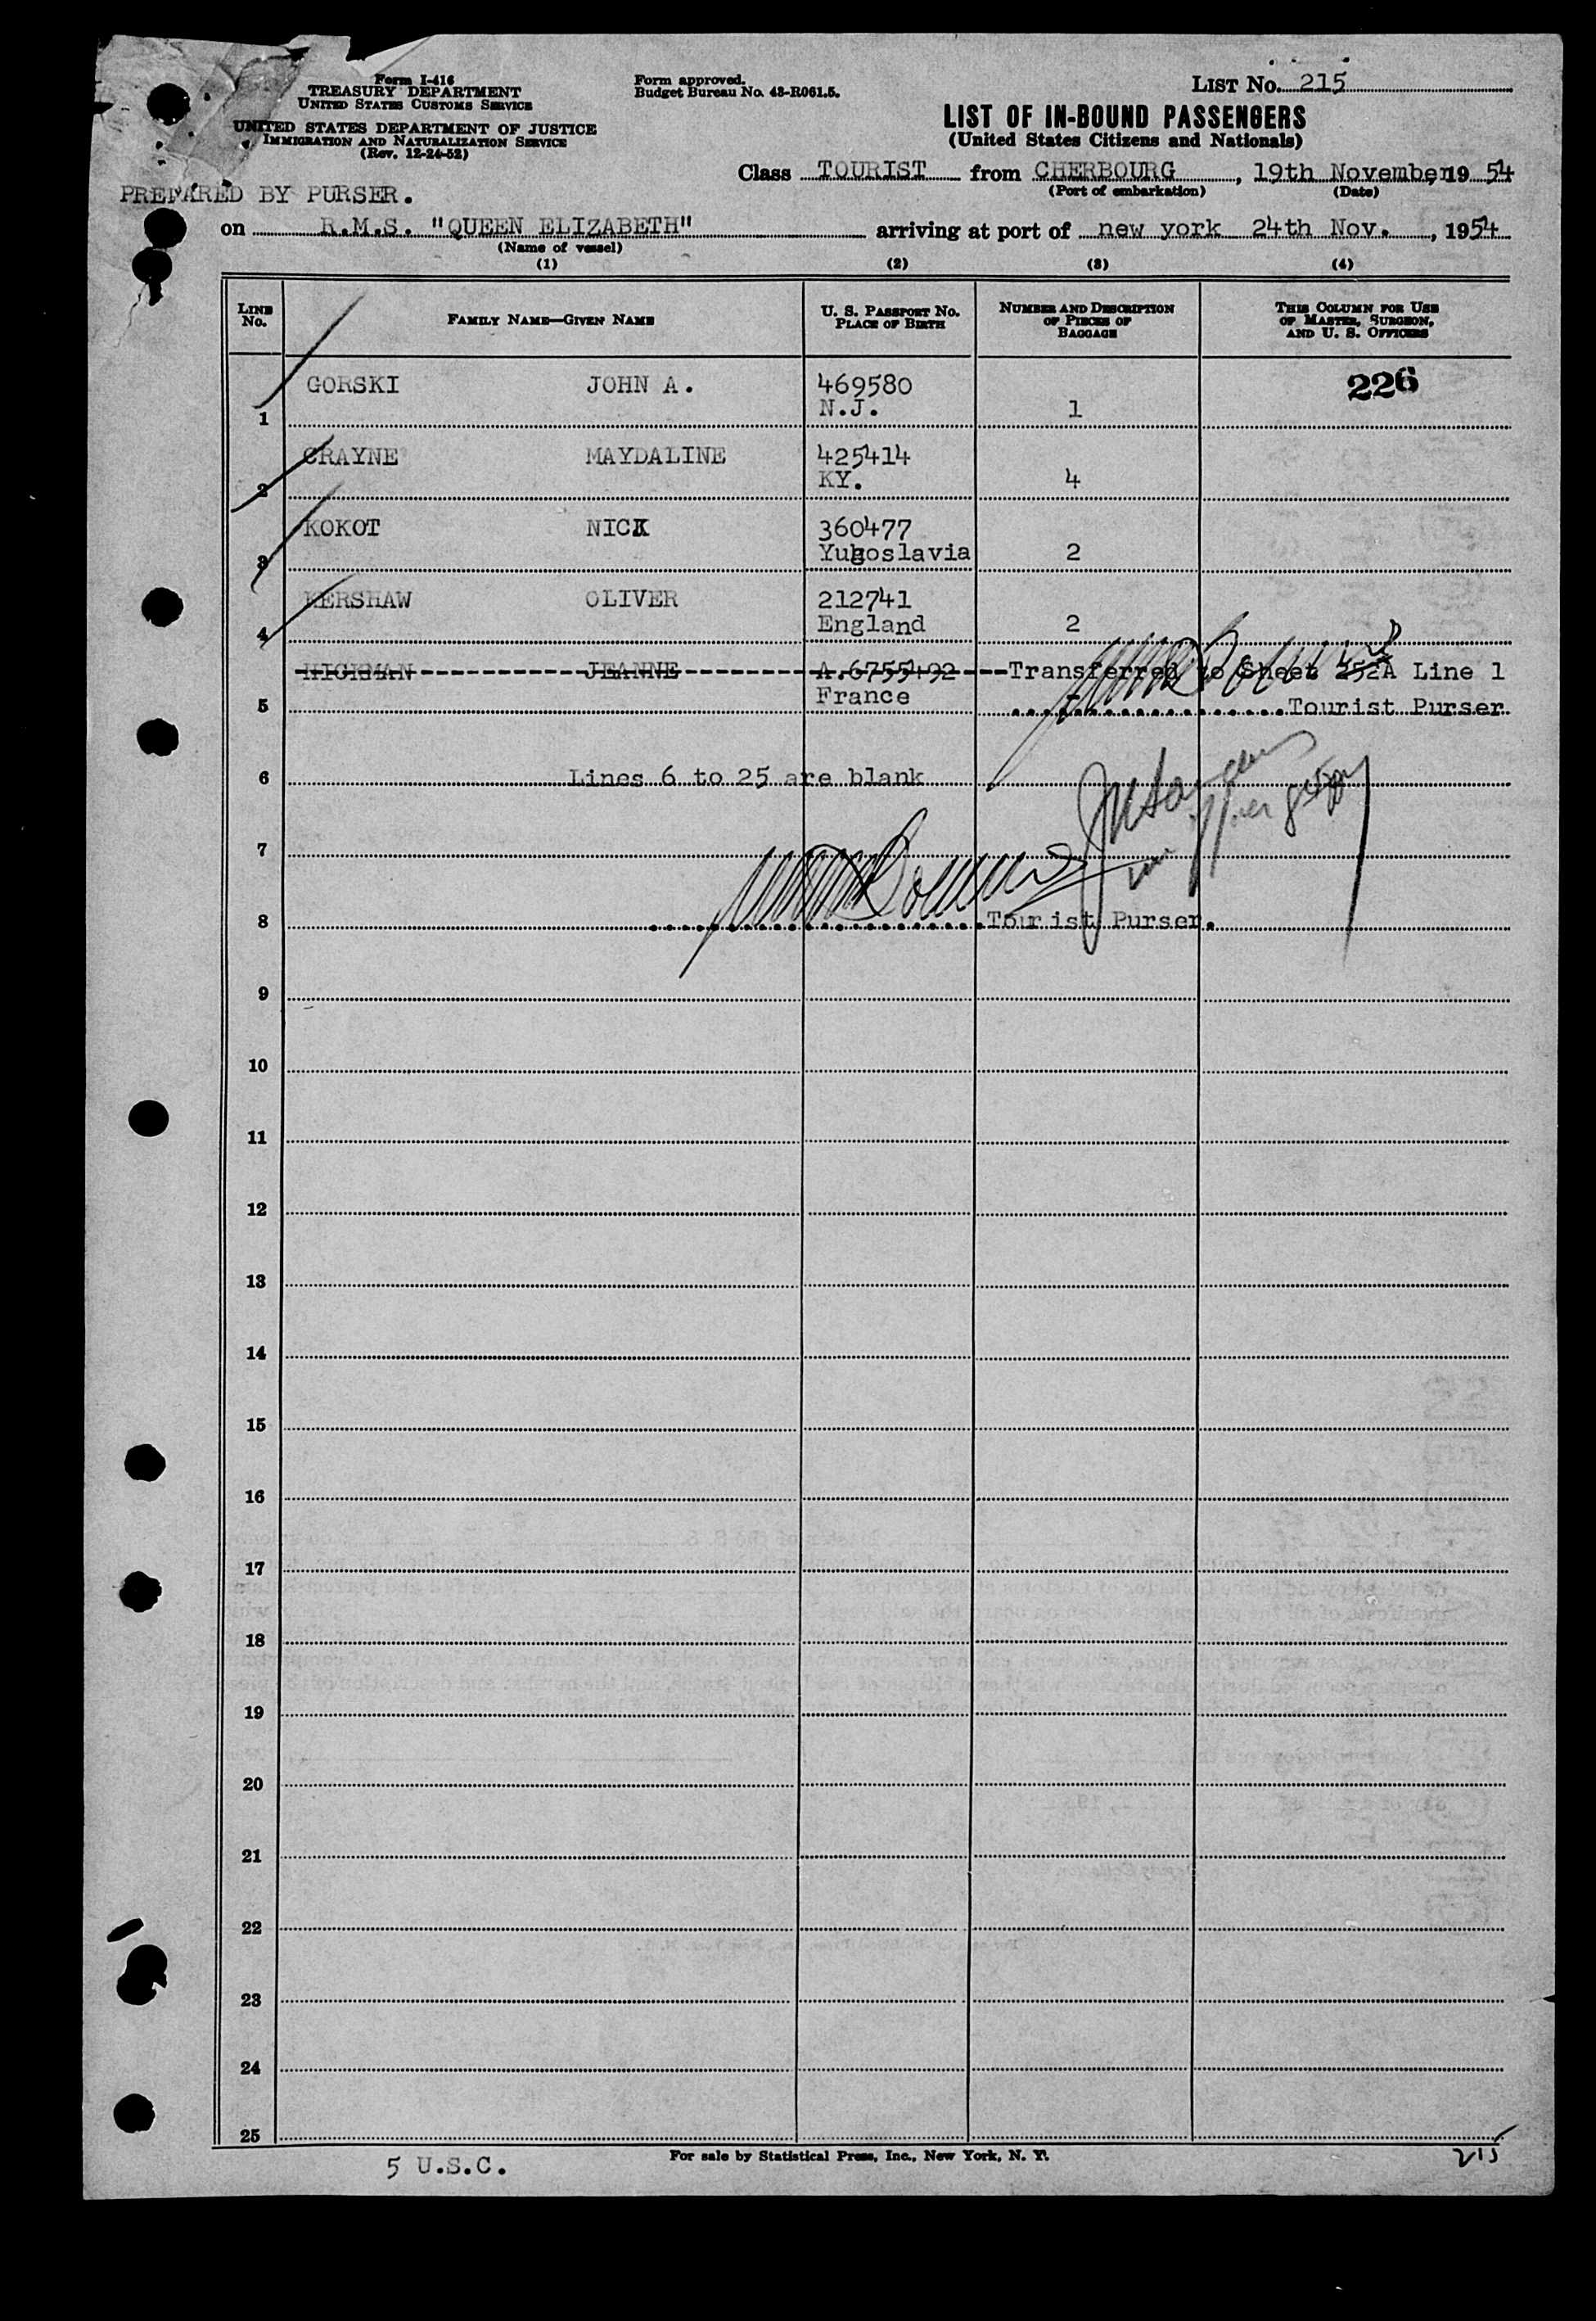 Form I-416
TREASURY DEPARTMENT
UNITED STATES CUSTOMS SERVICE
UNITED STATES DEPARTMENT OF JUSTICE
IMMIGRATION AND NATURALIZATION SERVICE
(Rev. 12-24-52)
Form approved.
Budget Bureau No. 43-R061.5.
LIST No. 215
LIST OF IN-BOUND PASSENGERS
(United States Citizens and Nationals)
Class TOURIST from CHERBOURG, 19th November, 1954
(Port of embarkation) (Date)
PREPARED BY PURSER.
on R.M.S. "QUEEN ELIZABETH" arriving at port of new york 24th Nov., 1954
(Name of vessel)
(1) (2) (3) (4)
LINE No. FAMILY NAME—GIVEN NAME U. S. PASSPORT No. PLACE OF BIRTH NUMBER AND DESCRIPTION OF PIECES OF BAGGAGE THIS COLUMN FOR USE OF MASTER, SURGEON, AND U. S. OFFICERS
GORSKI JOHN A. 469580 226
1 N.J. 1
CRAYNE MAYDALINE 425414
2 KY. 4
KOKOT NICK 360477
3 Yugoslavia 2
KERSHAW OLIVER 212741
4 England 2
HICKMAN JEANNE A.6755492 Transferred to Sheet 252A Line 1
5 France Tourist Purser
6 Lines 6 to 25 are blank
7
8 Tourist Purser.
9
10
11
12
13
14
15
16
17
18
19
20
21
22
23
24
25
5 U.S.C.
For sale by Statistical Press, Inc., New York, N. Y.
215